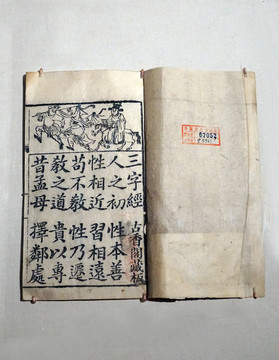 三字經 古香閣藏板
人之初 性本善
性相近 習相遠
苟不教 性乃遷
教之道 貴以專
昔孟母 擇鄰處
67052